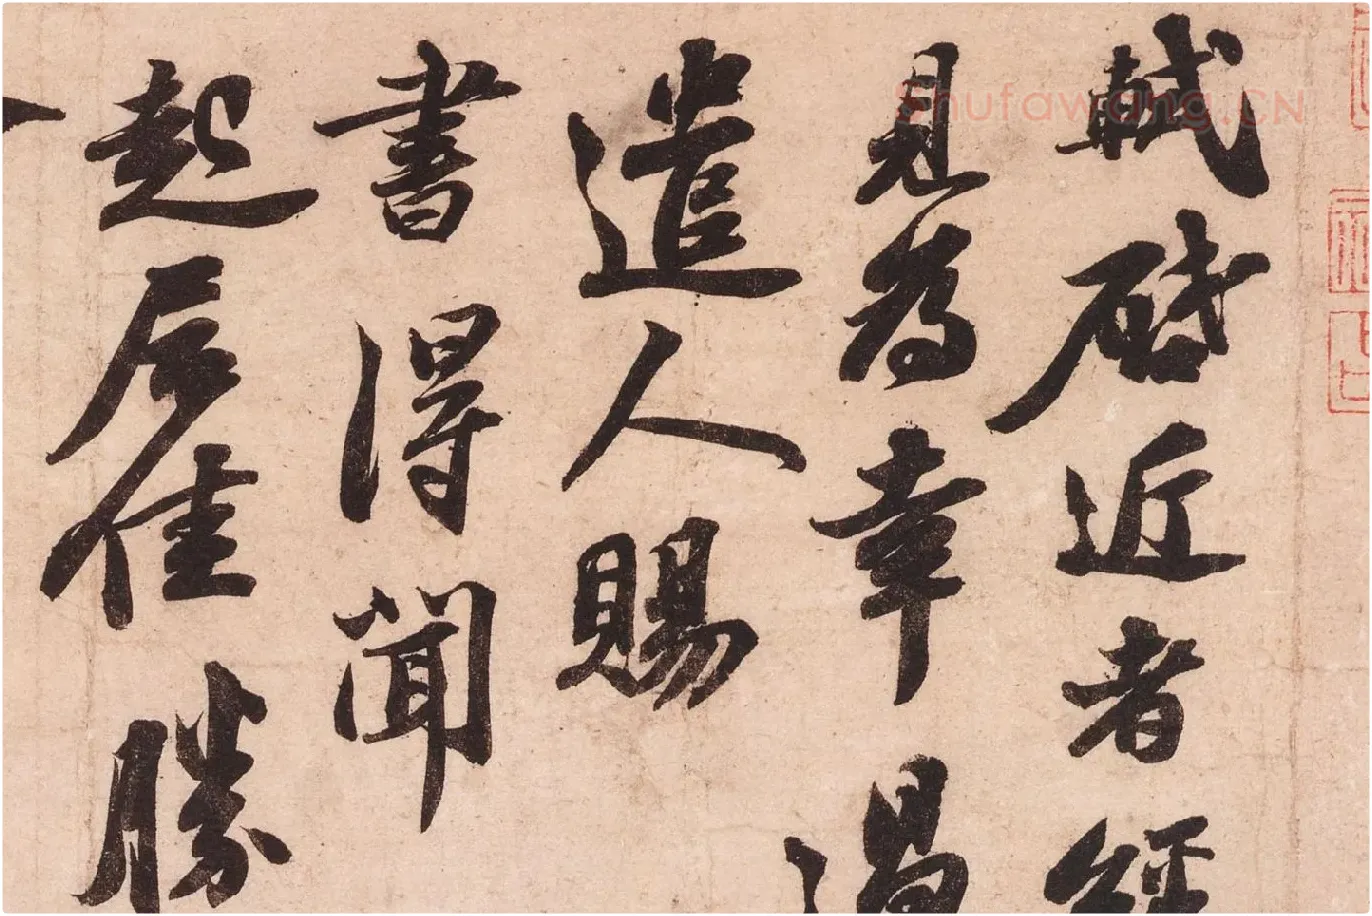 軾啓近者經
見爲幸過
遣人賜
書得聞
起居佳勝
Shufawang.CN